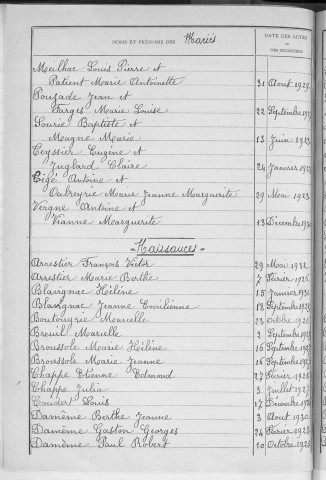 NOMS ET PRÉNOMS DES Mariés
DATE DES ACTES
OU
DES REGISTRES
Meilhac Louis Pierre et
Patient Marie Antoinette 31 Août
Pouzade Jean et
Farges Marie Louise 22 Septembre
Sourie Baptiste et
Magne Marie 13 Juin
Teyssier Eugène et
Juglard Claire 24 Janvier
Antoine et
Aubreyrie Marie Jeanne Marguerite 29 Mai
Vergne Antoine et
Vianne Marguerite 13 Décembre
Naissances
Arrestier François Victor 29 Mai 1932
Arrestier Marie Berthe 7 Février
Blavignac Hélène 15 Janvier
Blavignac Jeanne Emilienne 18 Septembre
Marcelle 23 Octobre
Breuil Marcelle 3 Septembre
Broussole Marie Hélène 16 Septembre
Broussole Marie Jeanne 16 Septembre
Chappe Etienne Edmond 27 Février
Chappe Julia 3 Juillet
Coudert Louis 17 Décembre
Damême Berthe Jeanne 3 Août 1930
Damême Gaston Georges 24 Février
Damême Paul Robert 10 Octobre